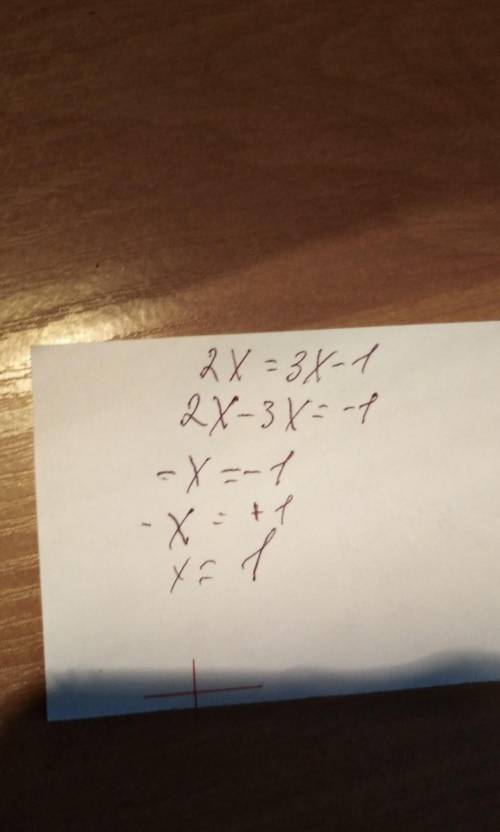 2x=3x-1
2x-3x=-1
-x=-1
-x=+1
x=1